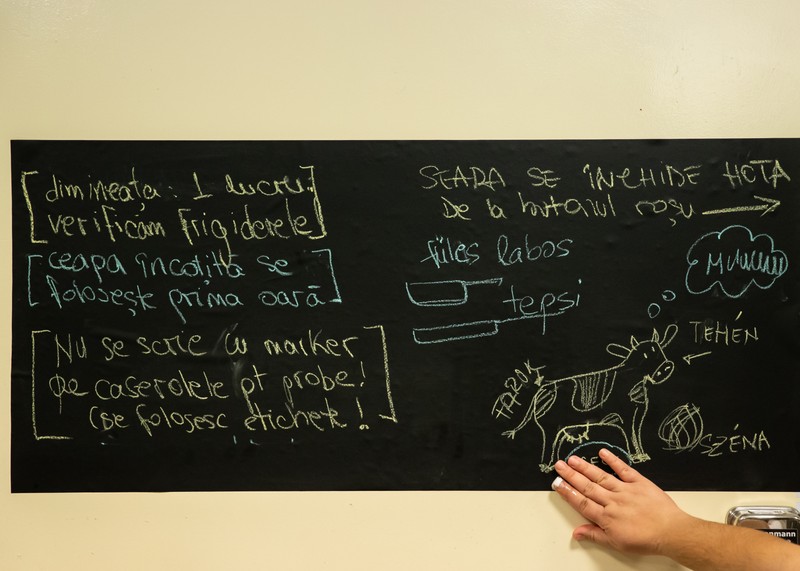 dimineața: 1 lucru:
verificăm frigiderele
ceapa încolțită se
folosește prima oară
Nu se scrie cu marker
pe caserolele pt probe!
(se folosesc etichete!
SEARA SE ÎNCHIDE HOTA
De la butonul roșu
füles labos
tepsi
Muuuuu
TEHÉN
FAROK
SZÉNA